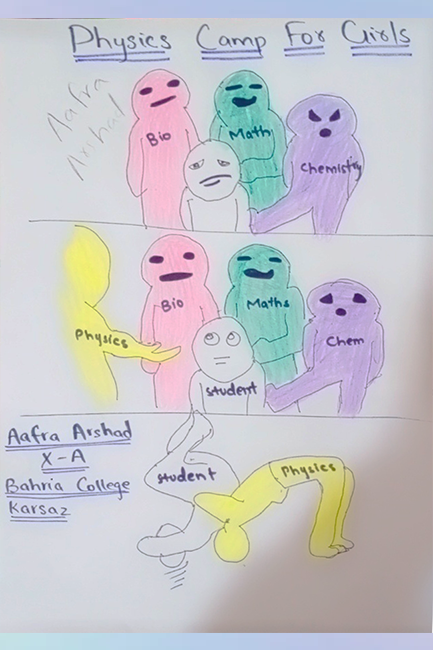 Physics Camp For Girls
Aafra
Arshad
Bio
Math
Chemistry
Physics
Bio
Maths
Chem
student
Aafra Arshad
X-A
Bahria College
Karsaz
student
Physics